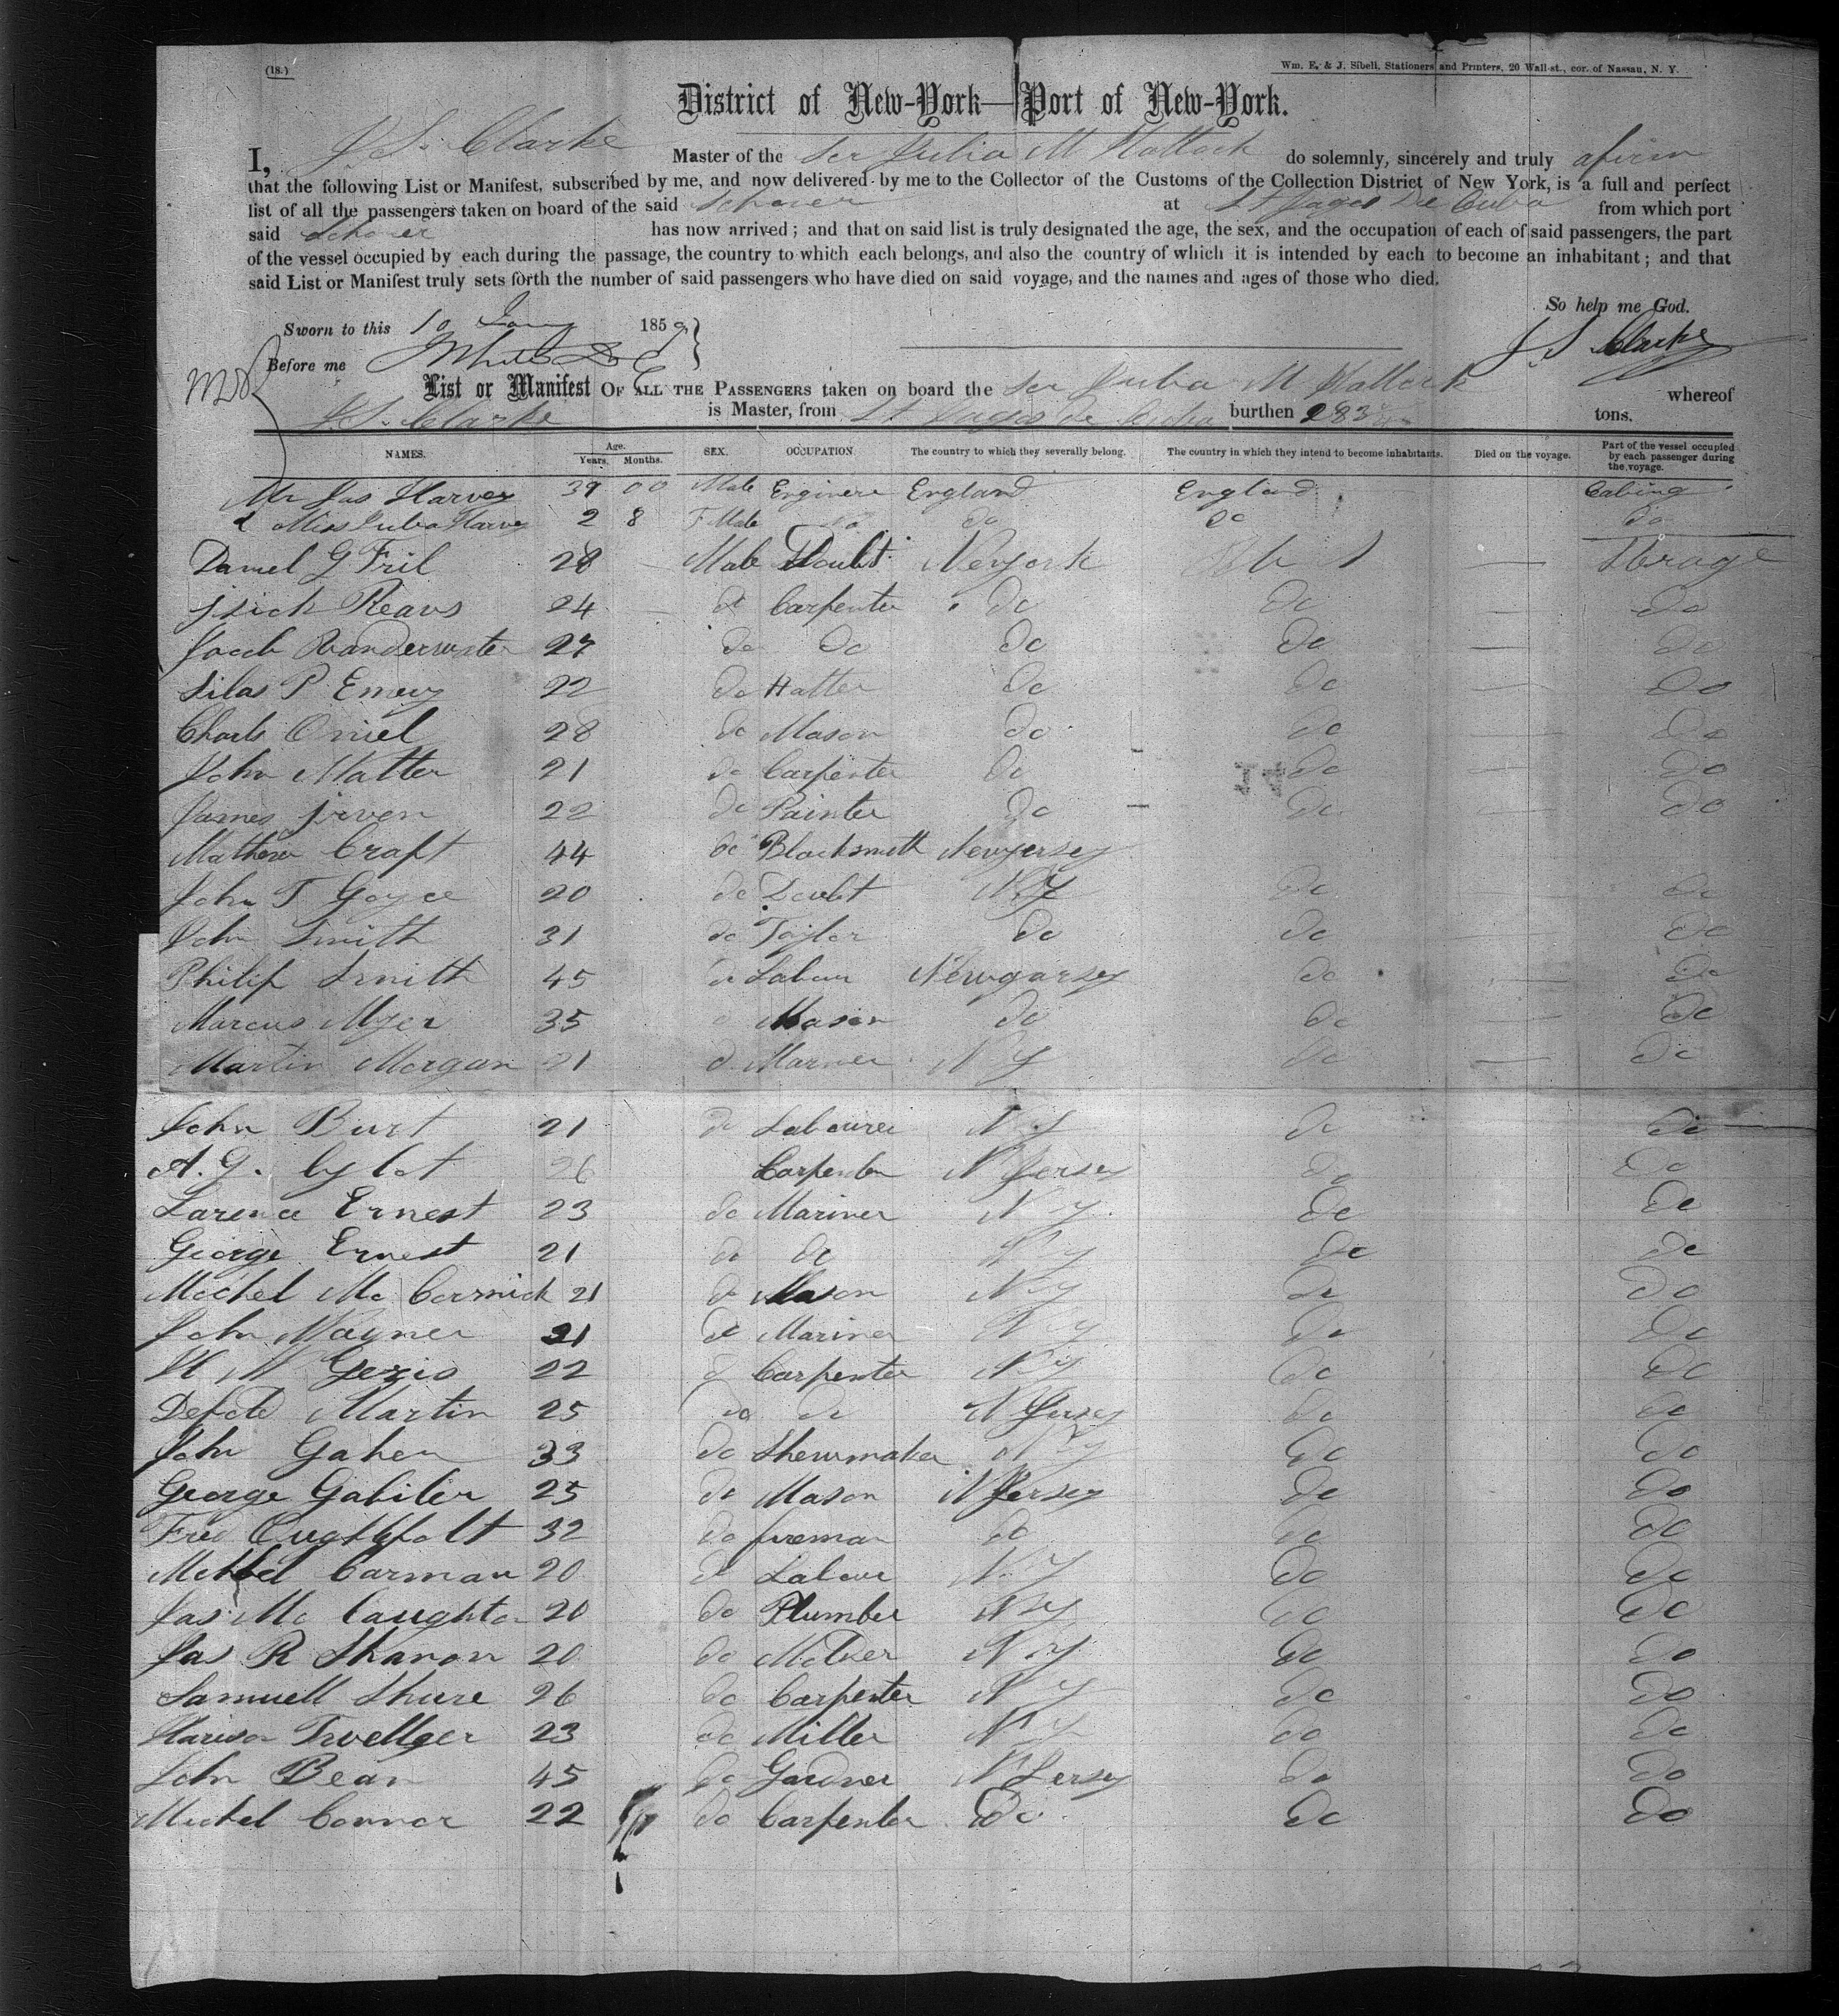 (18.)
Wm. E. & J. Sibell, Stationers and Printers, 20 Wall-st., cor. of Nassau, N. Y.
District of New-York—Port of New-York.
I, J. S. Clarke Master of the Scr Julia M Hallock do solemnly, sincerely and truly afirm
that the following List or Manifest, subscribed by me, and now delivered by me to the Collector of the Customs of the Collection District of New York, is a full and perfect
list of all the passengers taken on board of the said Schoner at St Jago De Cuba from which port
said Schoner has now arrived; and that on said list is truly designated the age, the sex, and the occupation of each of said passengers, the part
of the vessel occupied by each during the passage, the country to which each belongs, and also the country of which it is intended by each to become an inhabitant; and that
said List or Manifest truly sets forth the number of said passengers who have died on said voyage, and the names and ages of those who died.
So help me God.
Sworn to this 10 Jany 1859
J. S. Clarke
Before me
List or Manifest OF ALL THE PASSENGERS taken on board the Scr Julia M Hallock whereof
J. S. Clarke is Master, from St Jago De Cuba burthen 283 tons.
NAMES. Age. Years. Months. SEX. OCCUPATION. The country to which they severally belong. The country in which they intend to become inhabitants. Died on the voyage. Part of the vessel occupied by each passenger during the voyage.
Mr Jas Harvey 39 00 Male Enginere England England Cabing
& Miss Julia Harvey 2 8 F Male No do do Do
Daniel G Fril 28 Male Newyork — Sterage
Reavs 24 do Carpenter do do — do
Jacob Vanderwater 27 do do do do — do
Silas P Emery 22 do Hatter do do — do
Charls Oniel 28 do Mason do do — do
John Matter 21 do Carpenter do do — do
James Jrven 22 do Painter do do — do
Mathew Craft 44 do Blacksmith Newjersey
John T Goyce 20 do N.Y do — do
John Smith 31 do Taylor do do — do
Philip Smith 45 do Labour Newgarsey do — do
Marcus Myer 35 do Mason do do — do
Martin Morgan 21 do Marner N Y do — do
John Burt 21 do Labourer N.Y do do
A. G. Cylot 26 Carpenter N Jersey do do
Larence Ernest 23 do Mariner N Y. do do
George Ernest 21 do do N Y do do
Michel Mc Cormick 21 do Mason N Y do do
John Wagner 21 do Mariner N Y do do
22 do Carpenter N Y do do
Martin 25 do do N Jersey do do
John Gahen 33 do Shewmaker N Y do do
George Gabiler 25 do Mason N Jersey do do
Fred 32 do fireman do do do
Michel Carman 20 do Labour N. Y do do
Jas Mc Caughten 20 do Plumber N Y do do
Jas R Shanon 20 do N. Y do do
Samuell Shure 26 do Carpenter N Y do do
Harison Trvellger 23 do Miller N Y do do
John Bean 45 do Gardner N Jersey do do
Michel Connor 22 do Carpenter do do do